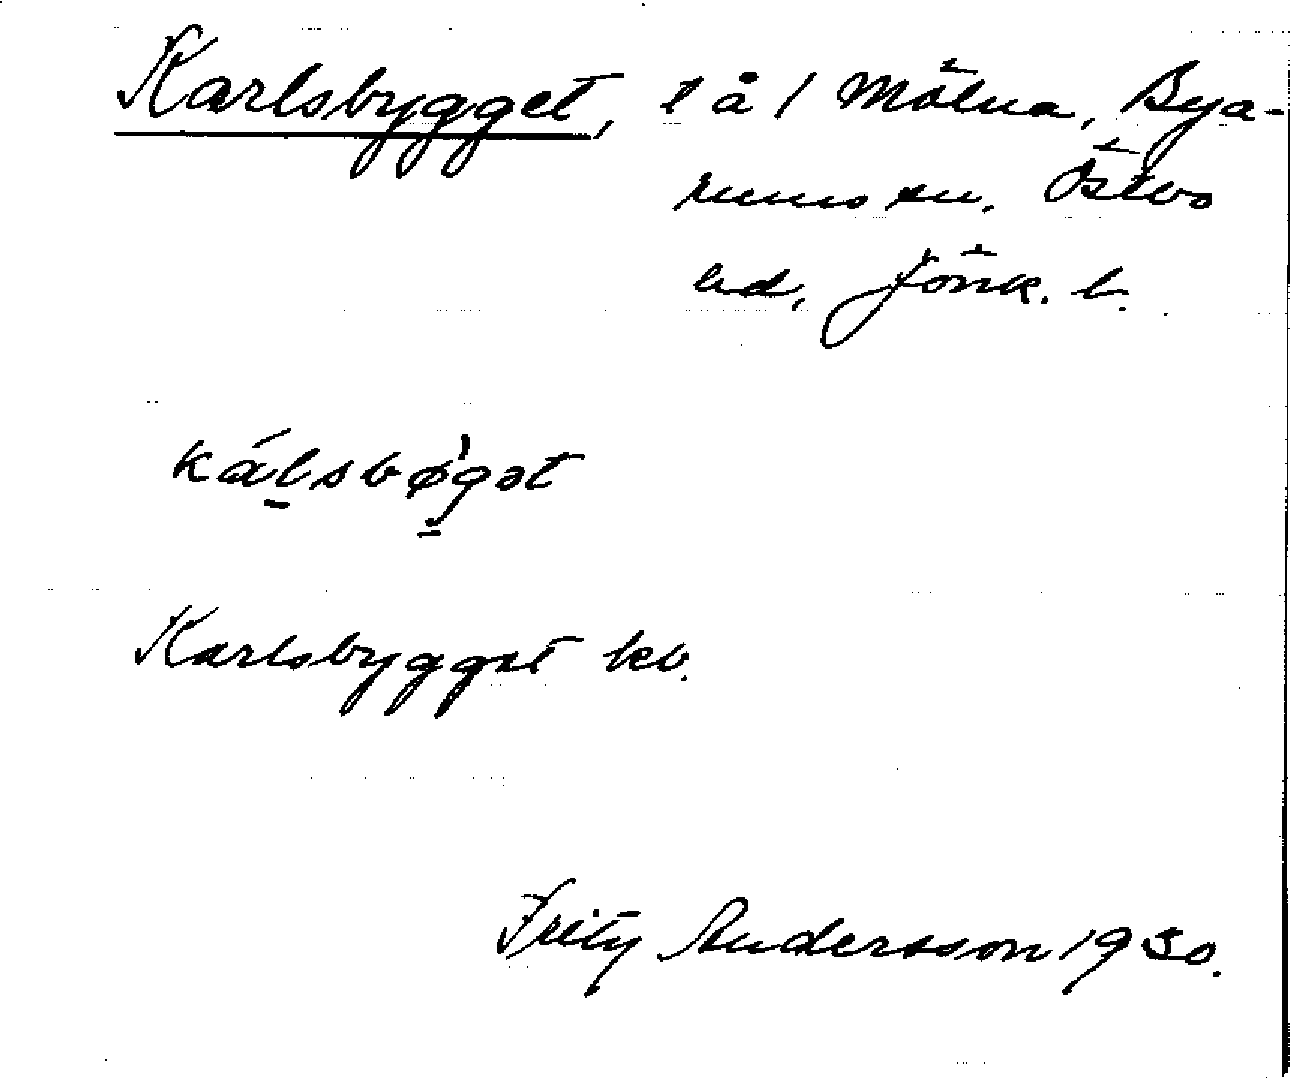 Karlsbygget, t å 1 Mölna, Bya-
rums sn. Östbo
hd, Jönk. l.
kálsbøgət
Karlsbygget kb.
Fritz Andersson 1930.